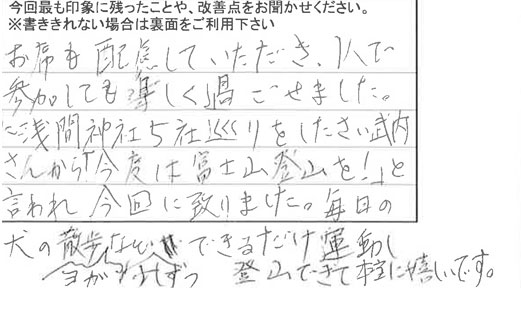 今回最も印象に残ったことや、改善点をお聞かせください。
※書ききれない場合は裏面をご利用下さい
お席も配慮していただき、1人で
参加しても楽しく過ごせました。
浅間神社5社巡りをしたさい武内
さんから「今度は富士山登山を!」と
言われ今回に致りました。毎日の
犬の散歩 できるだけ運動し
ヨガ ずつ 登山できて本当に嬉しいです。